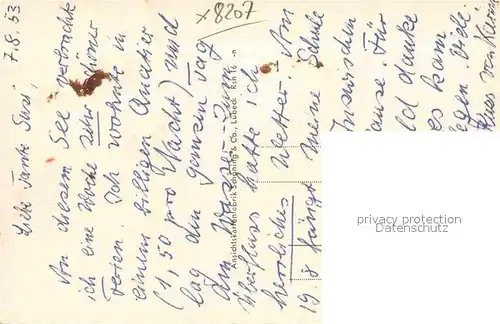 7.8.53
Liebe Tante Susi,
An diesem See verbrachte
ich eine Woche sehr schöner
Ferien. Ich wohnte in
einem billigen Quartier
(1,50 pro Nacht) und
lag den ganzen Tag
am Wasser. Zum
Überfluss hatte ich
herrliches Wetter. Am
19. 8 fängt meine Schule
Inzwischen
ause. Für
ld danke
es kam
egen. Viele
x 8207
Ansichtskartenfabrik Schöning & Co., Lübeck
privacy protection
AK-Ansichtskarten.de